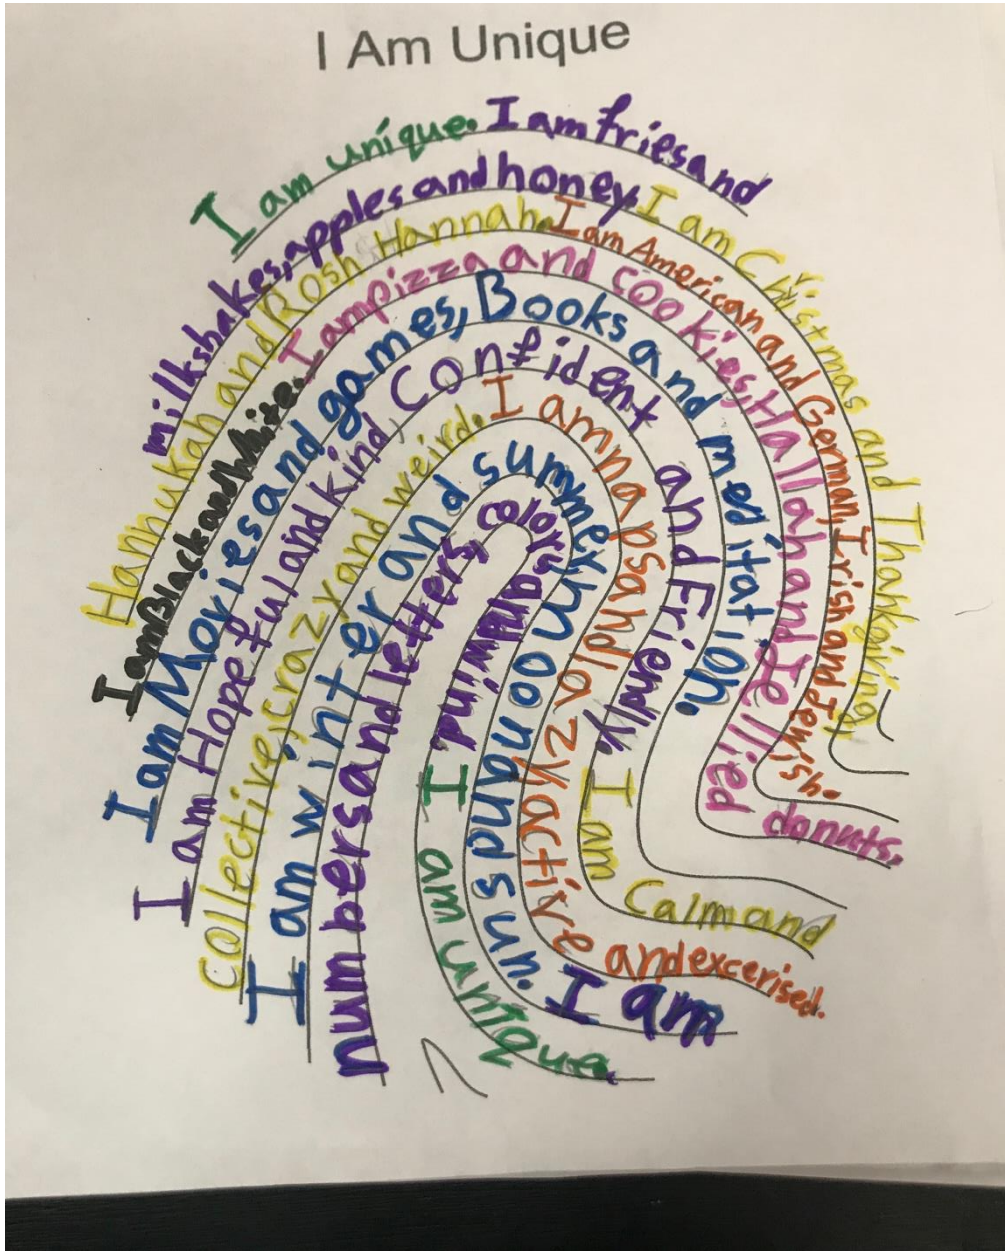 I Am Unique
I am unique. I am fries and
milkshakes, apples and honey. I am Christmas and Thankgiving,
Hannukah and Rosh Hannah. I am American and German, Irish and Jewish.
I am Black and white. I am pizza and cookies, Hallah and Jellied donuts.
I am Movies and games, Books and meditation.
I am Hopeful and kind, Confident and Friendly. I am Calm and
Collective, crazy and weird. I am naps and lazy active and excerised.
I am winter and summer, moon and sun. I am
numbers and letters, colors I am unique.